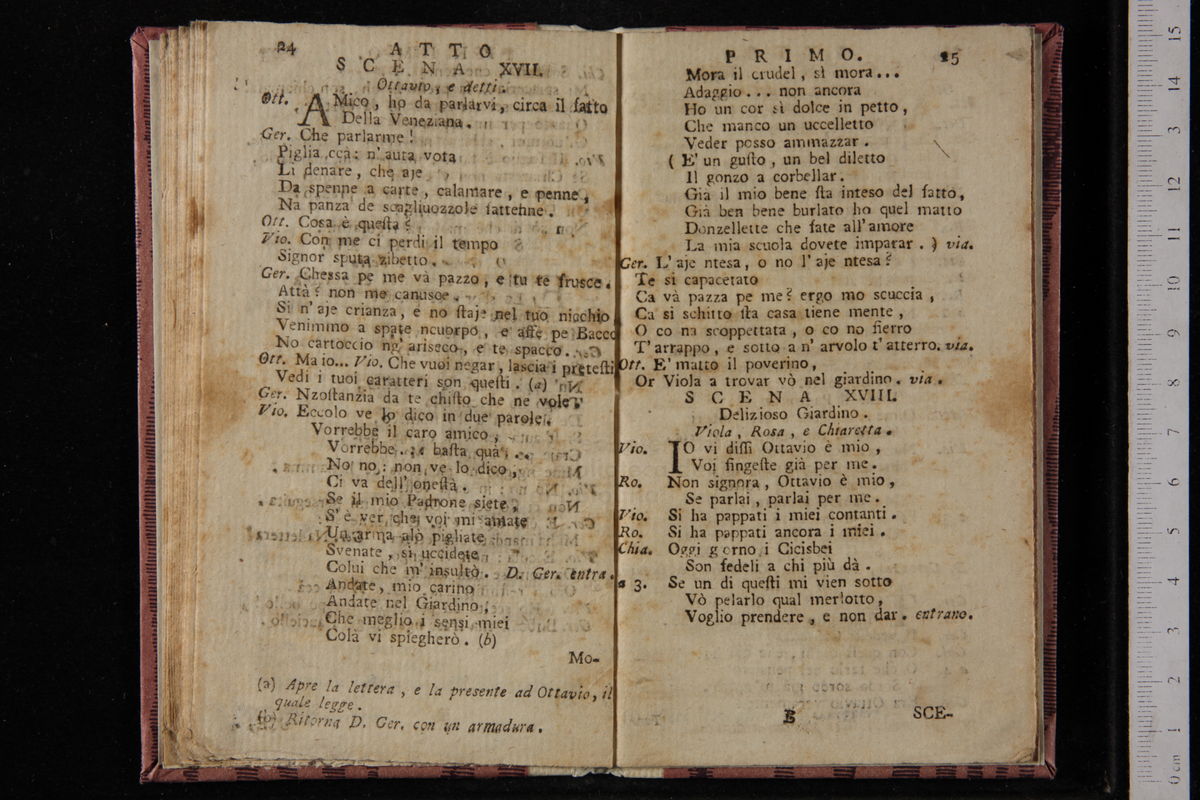 24 ATTO
SCENA XVII.
Ottavio, e detti.
Ott. AMico, ho da parlarvi, circa il fatto
Della Veneziana.
Ger. Che parlarme!
Piglia ccà: n'auta vota
Li denare, che aje
Da spenne a carte, calamare, e penne,
Na panza de scagliuozzole fattenne.
Ott. Cosa è questa?
Vio. Con me ci perdi il tempo
Signor sputa zibetto.
Ger. Chessa pe me và pazzo, e tu te frusce.
Attà? non me canusce.
Si n'aje crianza, e no staje nel tuo nicchio
Venimmo a spate ncuorpo, e affè pe Bacco
No cartoccio ng' ariseco, e te spacco.
Ott. Ma io... Vio. Che vuoi negar, lascia i pretesti
Vedi i tuoi caratteri son questi. (a)
Ger. Nzostanzia da te chisto che ne vole?
Vio. Eccolo ve lo dico in due parole.
Vorrebbe il caro amico,
Vorrebbe... basta quà...
No no: non ve lo dico,
Ci va dell'onestà.
Se il mio Padrone siete,
S'è ver, che voi mi amate
Un'arma alò pigliate
Svenate, sì uccidete
Colui che m'insultò. D. Ger. entra.
Andate, mio carino
Andate nel Giardino,
Che meglio i sensi miei
Colà vi spiegherò. (b)
Mo-
(a) Apre la lettera, e la presente ad Ottavio, il
quale legge.
(b) Ritorna D. Ger. con un armadura.
PRIMO. 25
Mora il crudel, sì mora...
Adaggio... non ancora
Ho un cor sì dolce in petto,
Che manco un uccelletto
Veder posso ammazzar.
(E' un gusto, un bel diletto
Il gonzo a corbellar.
Già il mio bene sta inteso del fatto,
Già ben bene burlato ho quel matto
Donzellette che fate all'amore
La mia scuola dovete imparar.) via.
Ger. L'aje ntesa, o no l'aje ntesa?
Te si capacetato
Ca và pazza pe me? ergo mo scuccia,
Ca si schitto sta casa tiene mente,
O co na scoppettata, o co no fierro
T'arrappo, e sotto a n' arvolo t'atterro. via.
Ott. E' matto il poverino,
Or Viola a trovar vò nel giardino. via.
SCENA XVIII.
Delizioso Giardino.
Viola, Rosa, e Chiaretta.
Vio. IO vi dissi Ottavio è mio,
Voi fingeste già per me.
Ro. Non signora, Ottavio è mio,
Se parlai, parlai per me.
Vio. Si ha pappati i miei contanti.
Ro. Si ha pappati ancora i miei.
Chia. Oggi g orno i Cicisbei
Son fedeli a chi più dà.
a 3. Se un di questi mi vien sotto
Vò pelarlo qual merlotto,
Voglio prendere, e non dar. entrano.
B SCE-